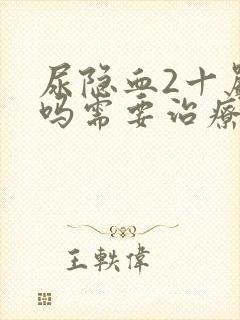 尿隐血2十
吗需要治疗
王軼偉